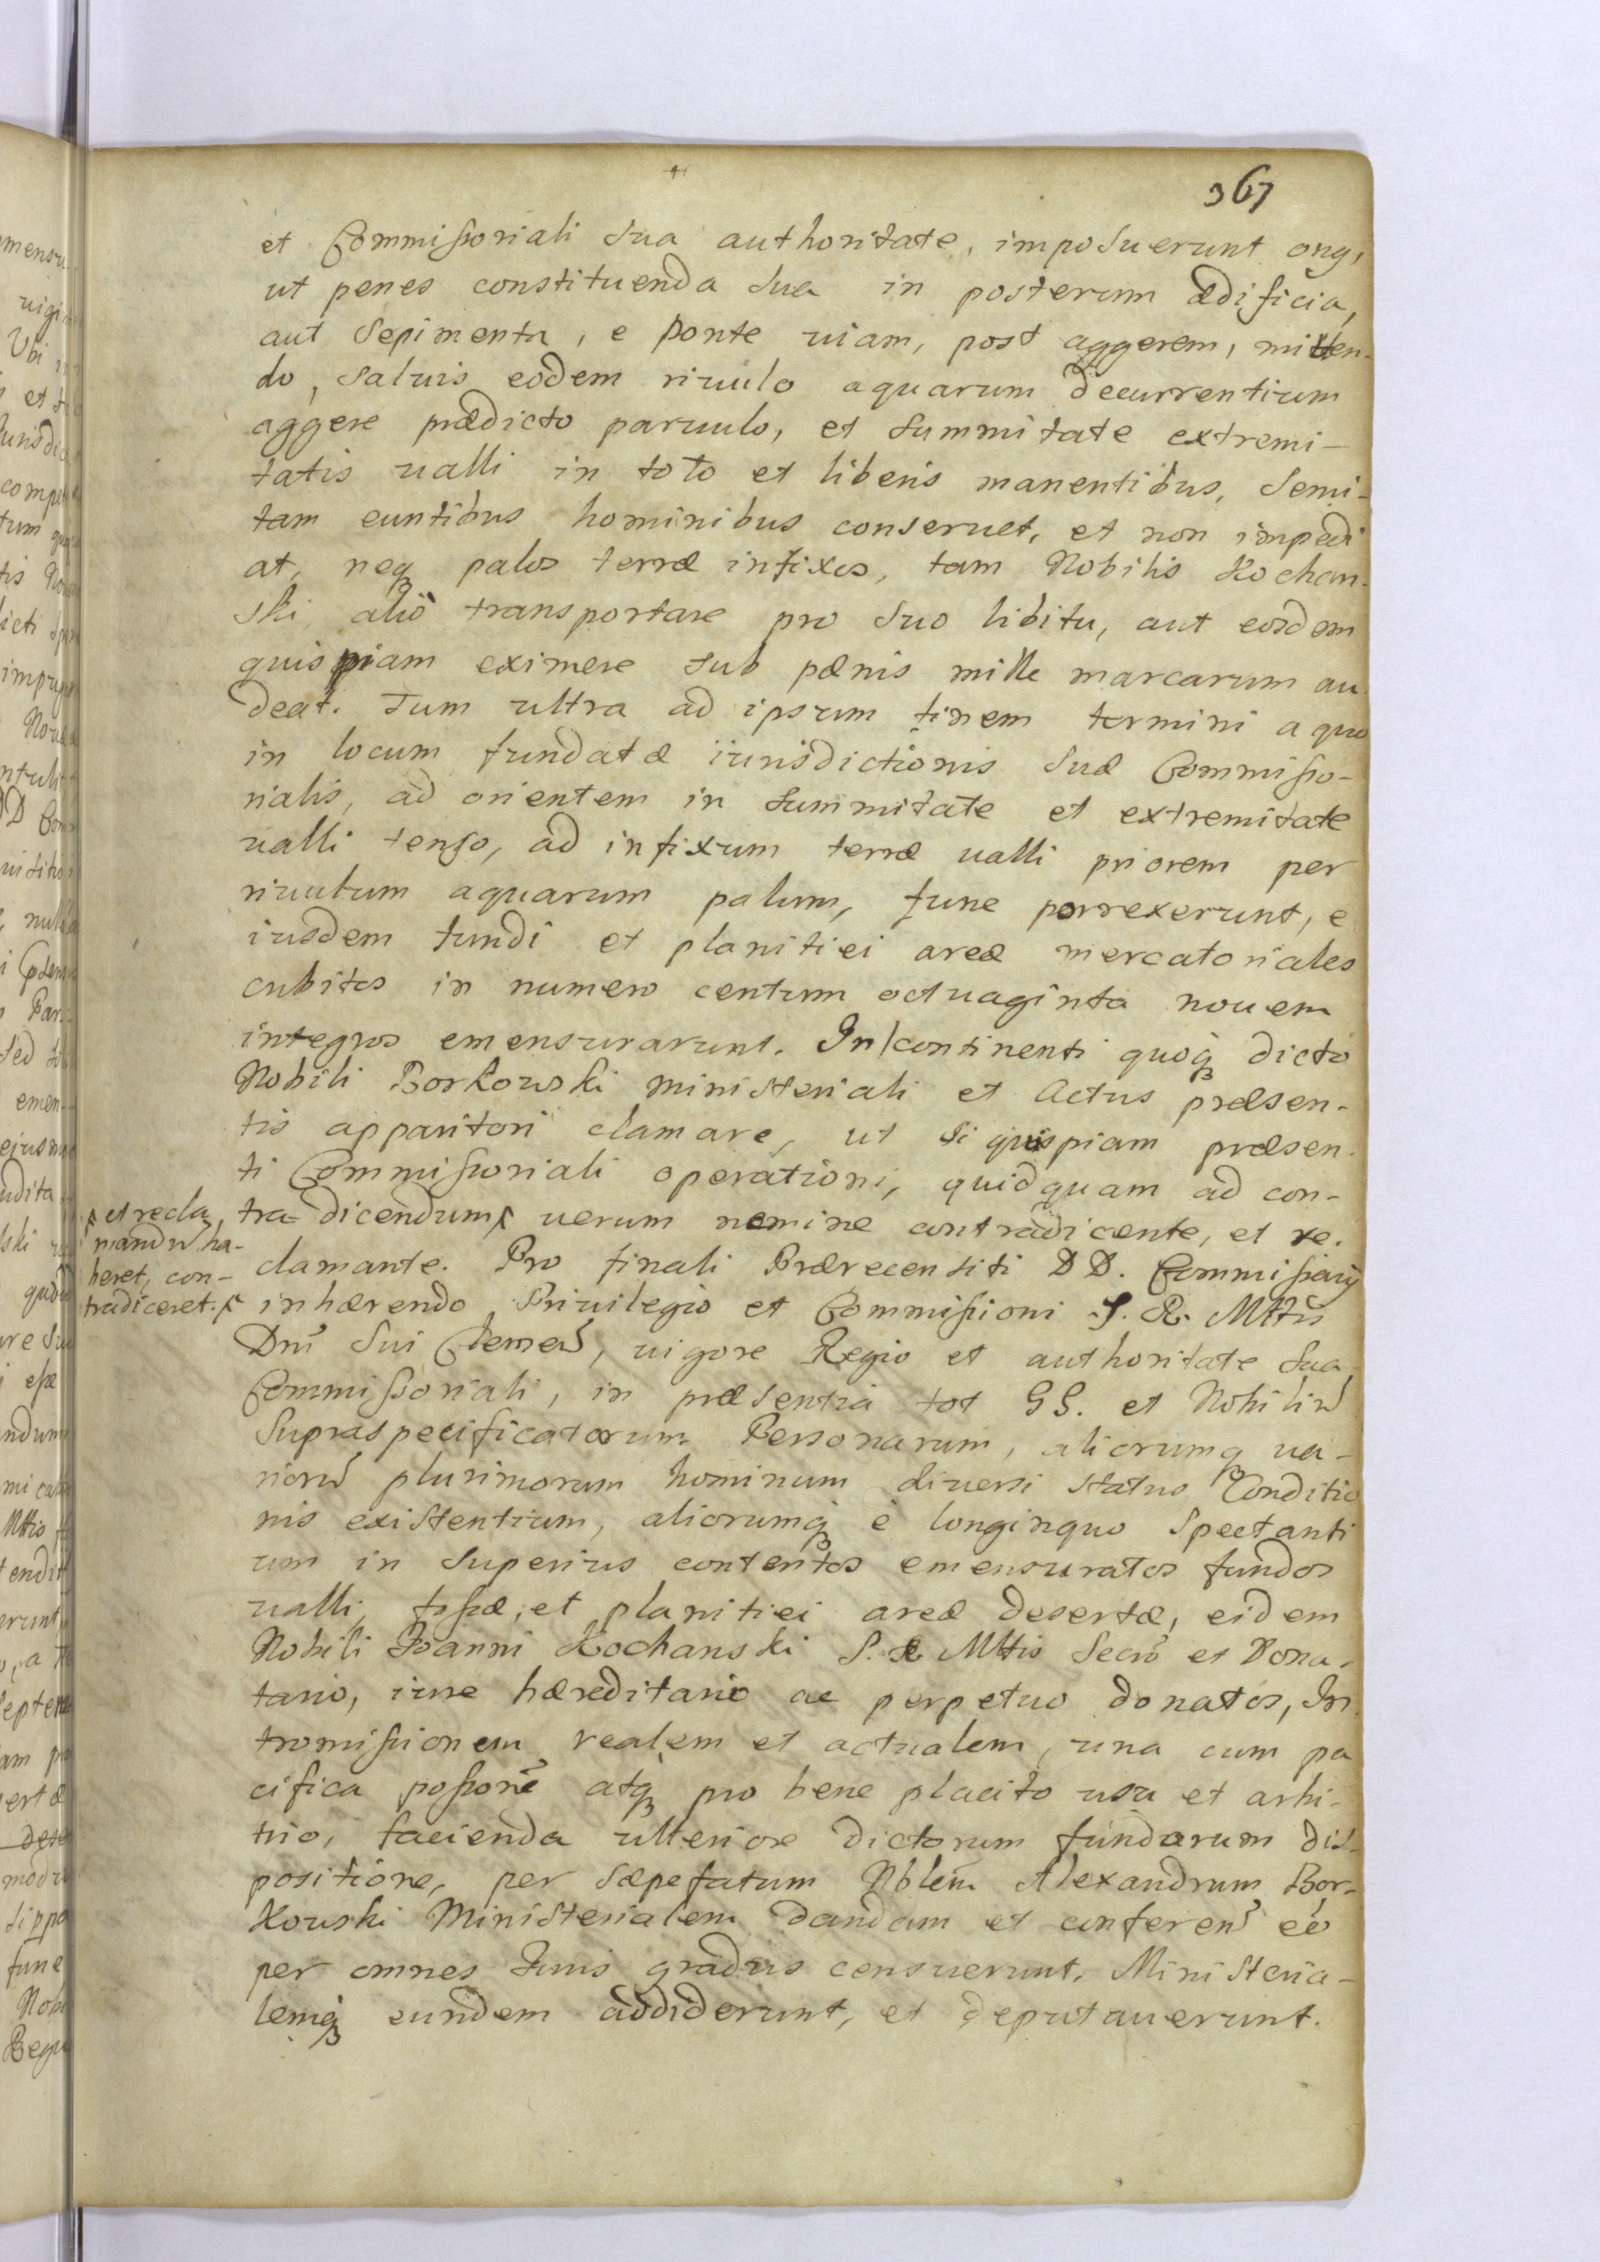 367
et Commissoriali sua authoritate, imposuerunt onq,
ut penes constituenda sua in posterum ædificia,
aut sepimenta, e ponte uiam, post aggerem, mitten-
do, saluis eodem riuulo aquarum decurrentium
aggere prædicto paruulo, et summitate extremi-
tatis ualli in toto et liberis manentibus, semi-
tam euntibus hominibus conseruet, et non impedi
at, neq palos terræ infixos, tam Nobilis Kochan-
ski, aliò transportare pro suo libitu, aut eosdem
quispiam eximere sub pænis mille marcarum au
deat. Tum ultra ad ipsum finem termini a quo
in locum fundatæ iurisdictionis suæ Commisso-
rialis, ad orientem in summitate et extremitate
ualli tenso, ad infixum terræ ualli priorem per
riuulum aquarum palum, fune porrexerunt, e
iusdem fundi et planitiei areæ mercatoriales
cubitos in numero centum octuaginta nouem
integros emensurarunt. In continenti quoq dicto
Nobili Borkowski ministeriali et Actus præsen-
tis apparitori clamare, ut si quispiam præsen-
ti Commissoriali operationi, quidquam ad con-
tra dicendum uerum nemine contradicente, et re.
et recla
mandū ha-
beret, con-
tradiceret.
clamante. Pro finali Prærecensiti DD. Commissarij
inhærendo Priuilegio et Commissioni S. R. Mttis
Dni sui Clemen, uigore Regio et authoritate sua
Commissoriali, in præsentia tot GG. et Nobiliū
supraspecificatorum Personarum, aliorumq ua-
riorū plurimorum hominum diuersi status Conditio
nis existentium, aliorumq è longinquo spectanti
um in superius contentos emensuratos fundos
ualli, fossæ, et planitiei areæ desertæ, eidem
Nobili Joanni Kochanski S. R. Mttis Secrō et Dona-
tario, iure hæreditario ac perpetuo donatos, In
tromissionem realem et actualem, una cum pa
cifica possone atq pro bene placito usu et arbi-
trio, facienda ulteriore dictorum fundorum dis-
positione, per sæpefatum Nblem Alexandrum Bor-
kowski Ministerialem dandam et conferen eē
per omnes Iuris gradus censuerunt. Ministeria-
lemq eundem addiderunt, et deputauerunt.